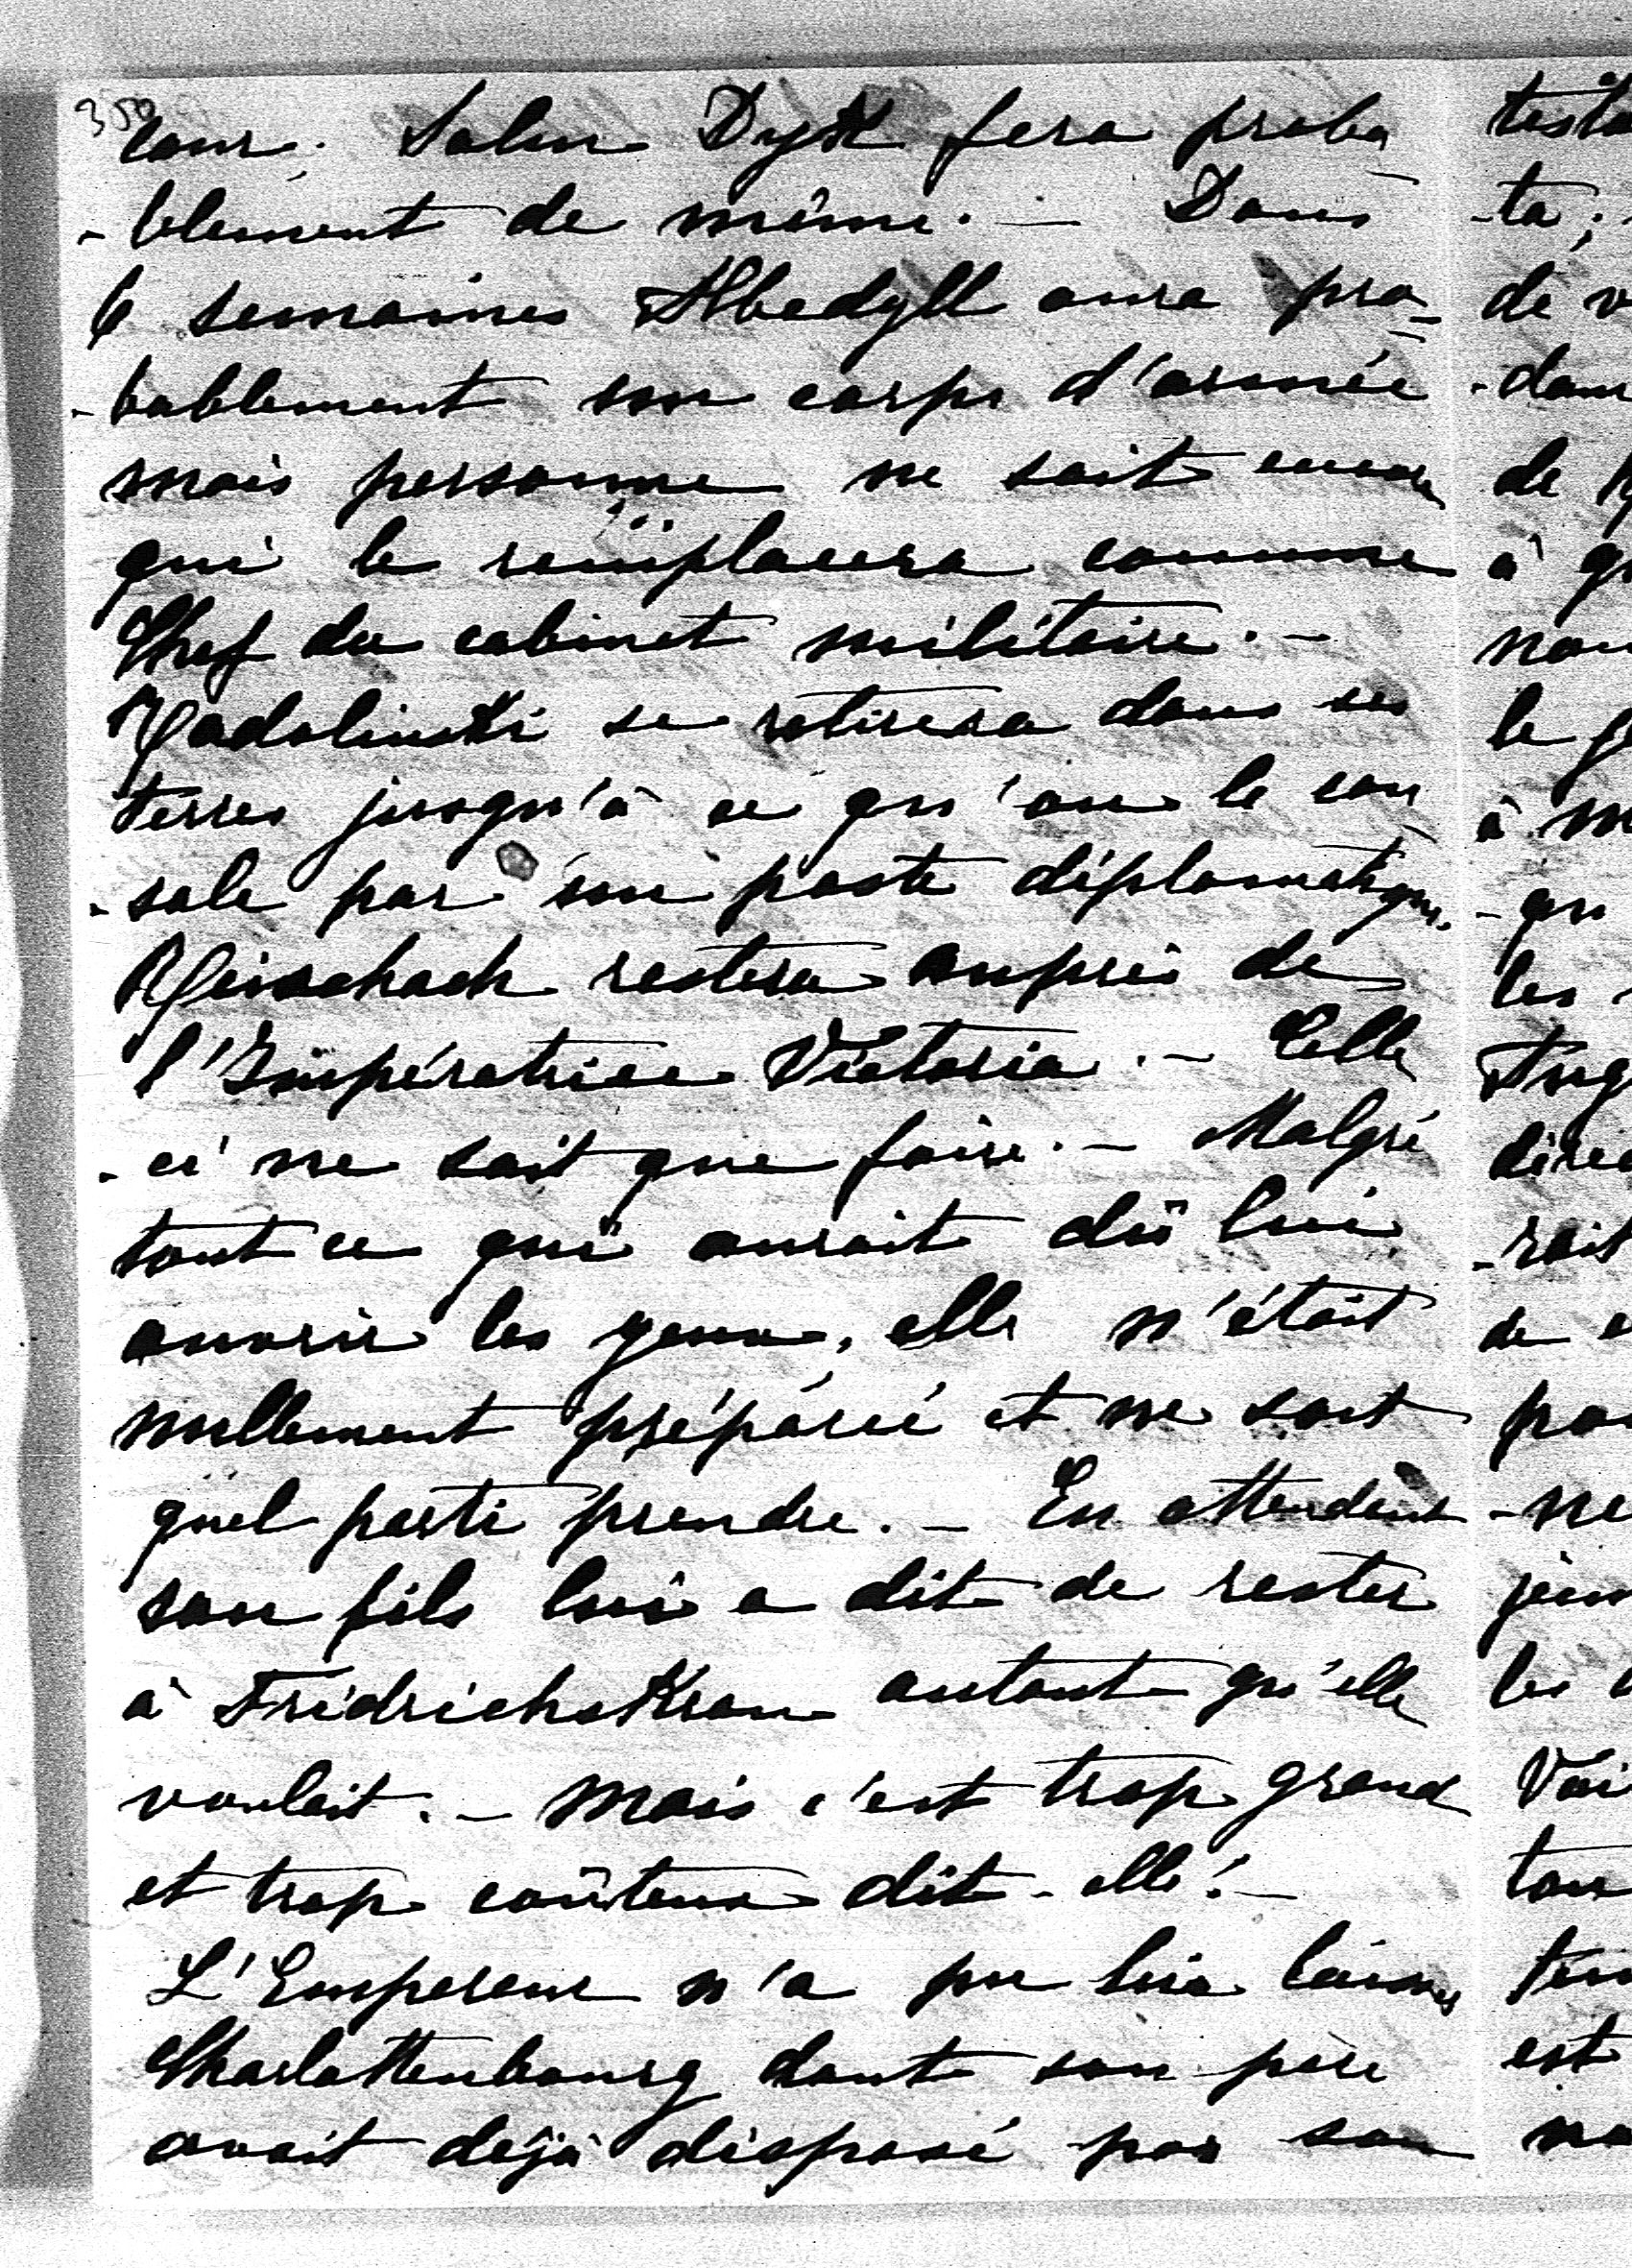 350
cour. Salm Dyk fera proba
-blement de même. — Dans
6 semaines Albedyll aura pro-
-bablement son corps d'armée
mais personne ne sait encore
qui le remplacera comme
Chef du cabinet militaire. —
Radolinski se retirera dans ses
terres jusqu'à ce qu'on le con
-sole par un poste diplomatique.
Reischach restera auprès de
l'Impératrice Victoria. — Celle
-ci ne sait que faire. — Malgré
tout ce qui aurait dû lui
ouvrir les yeux, elle n'était
nullement préparée et ne sait
quel parti prendre. — En attendant
son fils lui a dit de rester
à Fridrichskron autant qu'elle
voulait. — Mais c'est trop grand
et trop coûteux dit-elle! —
L'Empereur n'a pu lui laisser
Charlottenbourg dont son père
avait déjà disposé par son